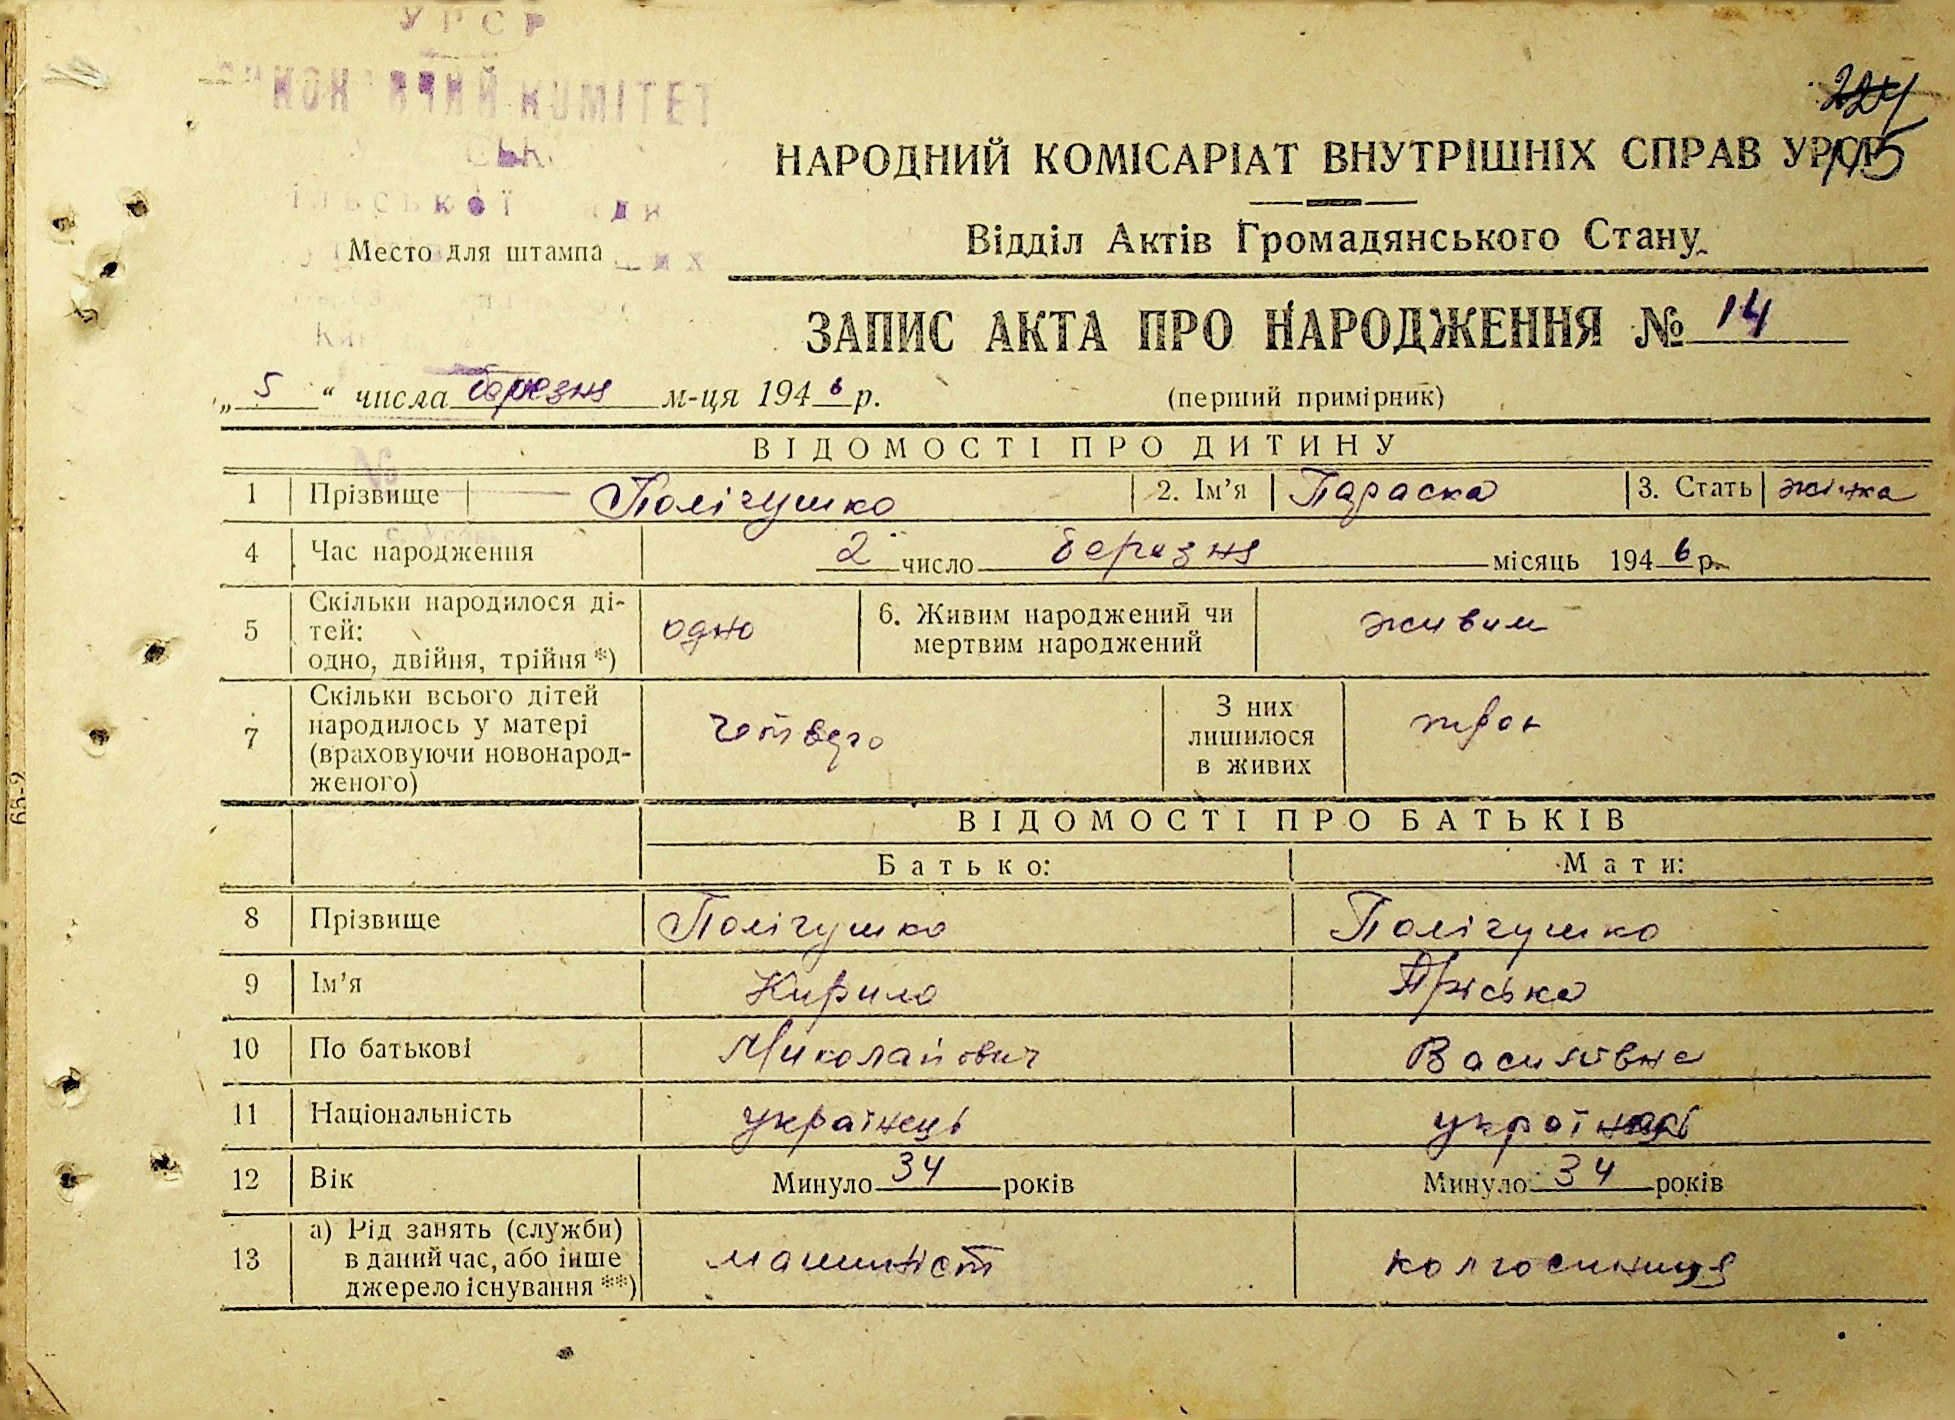 УРСР
КОМІТЕТ
224
115
НАРОДНИЙ КОМІСАРІАТ ВНУТРІШНІХ СПРАВ УРСР
Відділ Актів Громадянського Стану
Место для штампа
ЗАПИС АКТА ПРО НАРОДЖЕННЯ № 14
„ 5 “ числа березня м-ця 1946 р. (перший примірник)
ВІДОМОСТІ ПРО ДИТИНУ
1 Прізвище Полігушко 2. Ім’я Параска 3. Стать жінка
4 Час народження 2 число березня місяць 1946 р.
5 Скільки народилося ді-
тей:
одно, двійня, трійня *) одно 6. Живим народжений чи
мертвим народжений живим
7 Скільки всього дітей
народилось у матері
(враховуючи новонарод-
женого) четверо З них
лишилося
в живих троє
ВІДОМОСТІ ПРО БАТЬКІВ
Батько: Мати:
8 Прізвище Полігушко Полігушко
9 Ім’я Кирило Пріська
10 По батькові Миколайович Василівна
11 Національність українець
12 Вік Минуло 34 років Минуло 34 років
13 а) Рід занять (служби)
в даний час, або інше
джерело існування **) машиніст колгоспниця
65-2